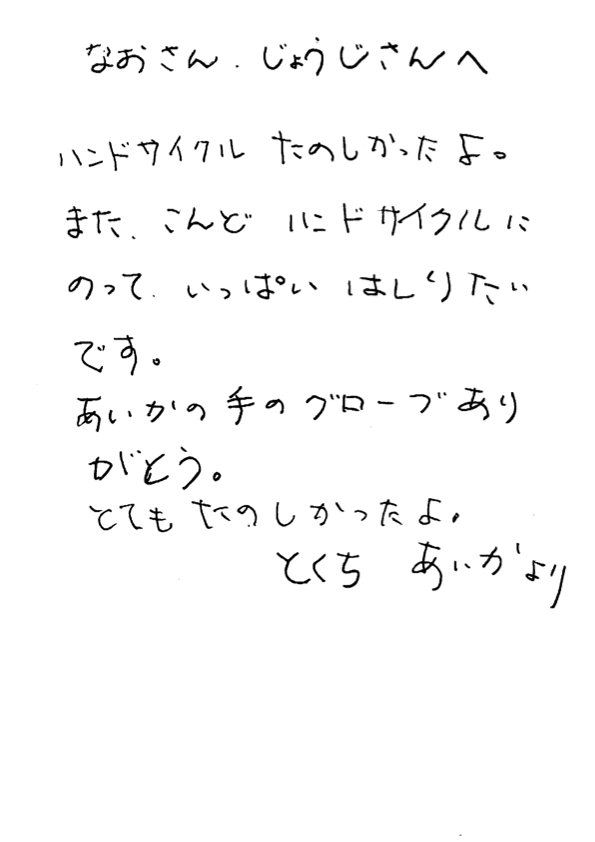 なおさん、じょうじさんへ
ハンドサイクル たのしかったよ。
また、こんど ハンドサイクルに
のって、いっぱい はしりたい
です。
あいかの手のグローブあり
がとう。
とても たのしかったよ。
とくち あいかより